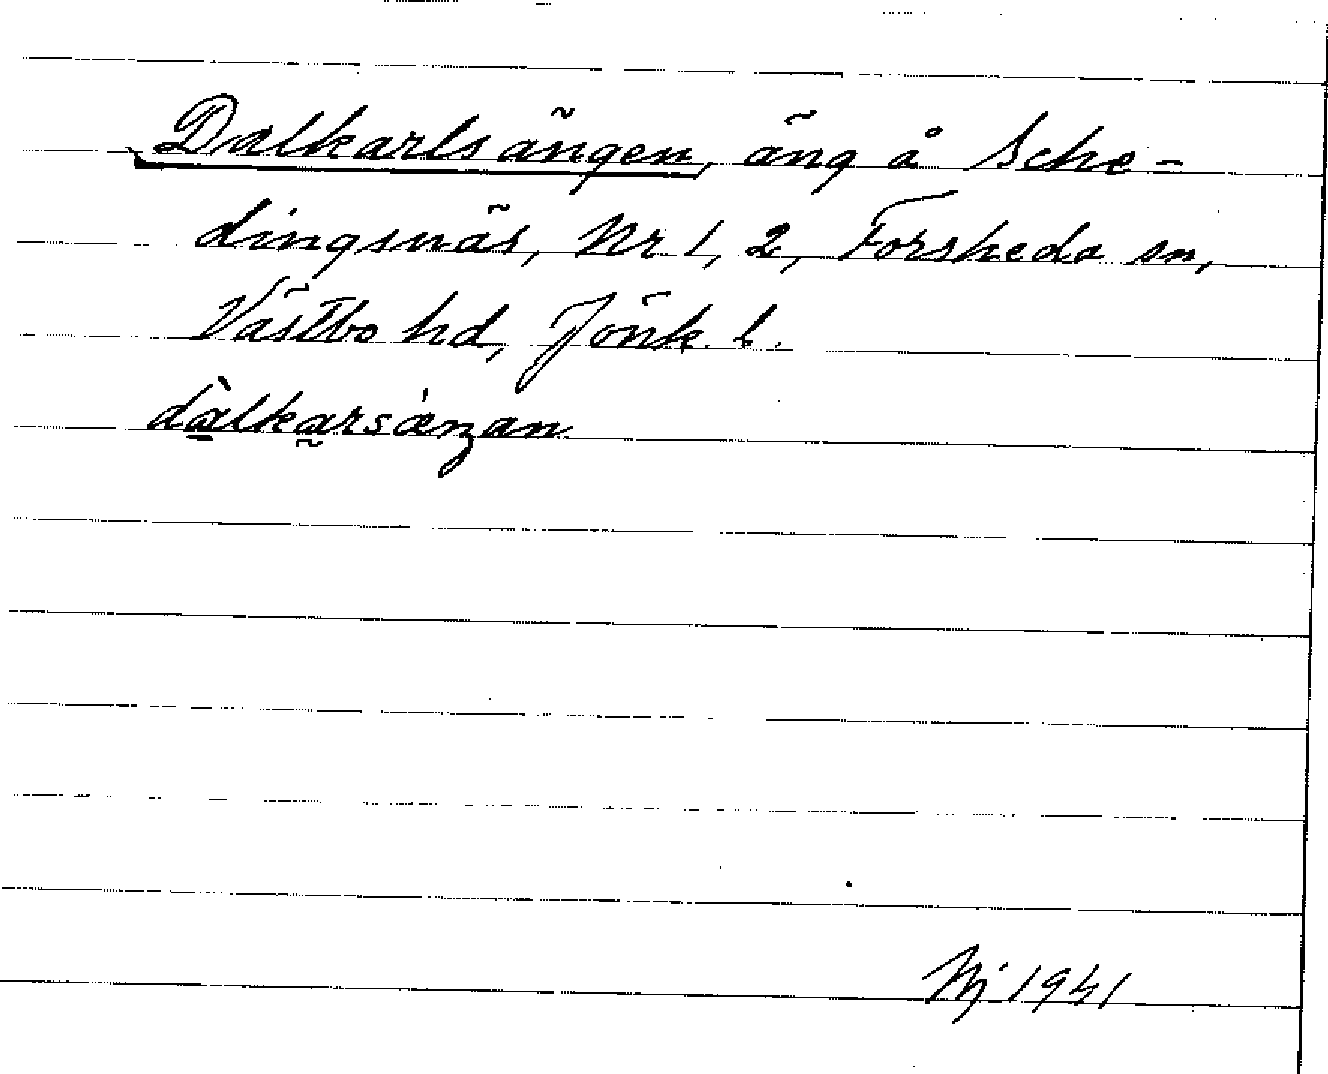 Dalkarlsängen, äng å Sche-
dingsnäs, Nr 1, 2, Forsheda sn,
Västbo hd, Jönk. l.
dàlkarsáŋan
1941